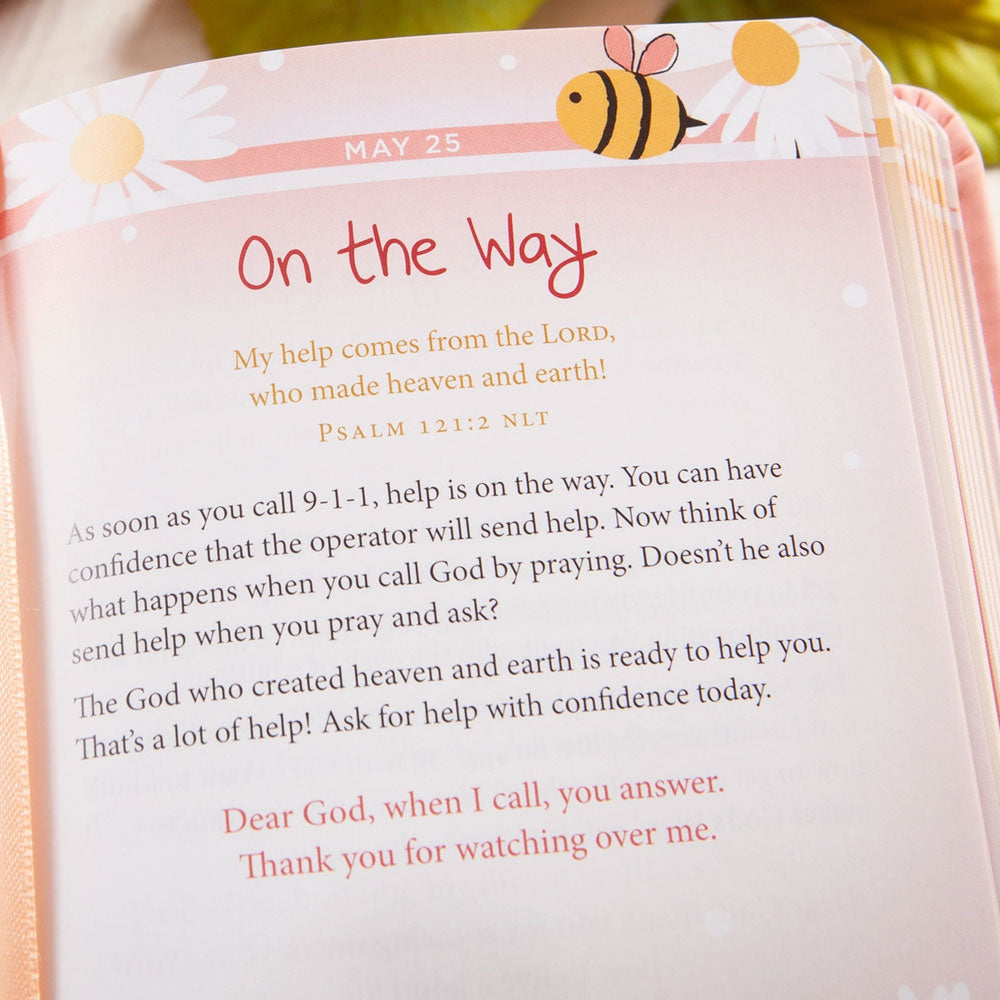 MAY 25
On the Way
My help comes from the LORD,
who made heaven and earth!
PSALM 121:2 NLT
As soon as you call 9-1-1, help is on the way. You can have
confidence that the operator will send help. Now think of
what happens when you call God by praying. Doesn't he also
send help when you pray and ask?
The God who created heaven and earth is ready to help you.
That's a lot of help! Ask for help with confidence today.
Dear God, when I call, you answer.
Thank you for watching over me.